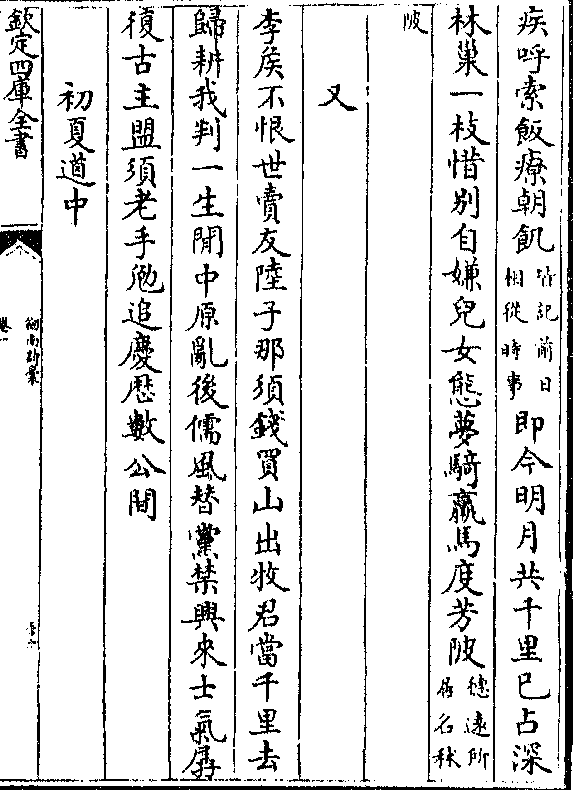 疾呼索飯療朝飢皆記前日相從時事即今明月共千里已占深
林巢一枝惜别自嫌兒女態夢騎羸馬度芳陂德遠所居名秫
陂
又
李矦不恨世賣友陸子那須錢買山出牧君當千里去
歸耕我判一生閒中原亂後儒風替黨禁興來士氣孱
復古主盟須老手勉追慶厯數公間
初夏道中
欽定四庫全書
劍南詩藁
卷一